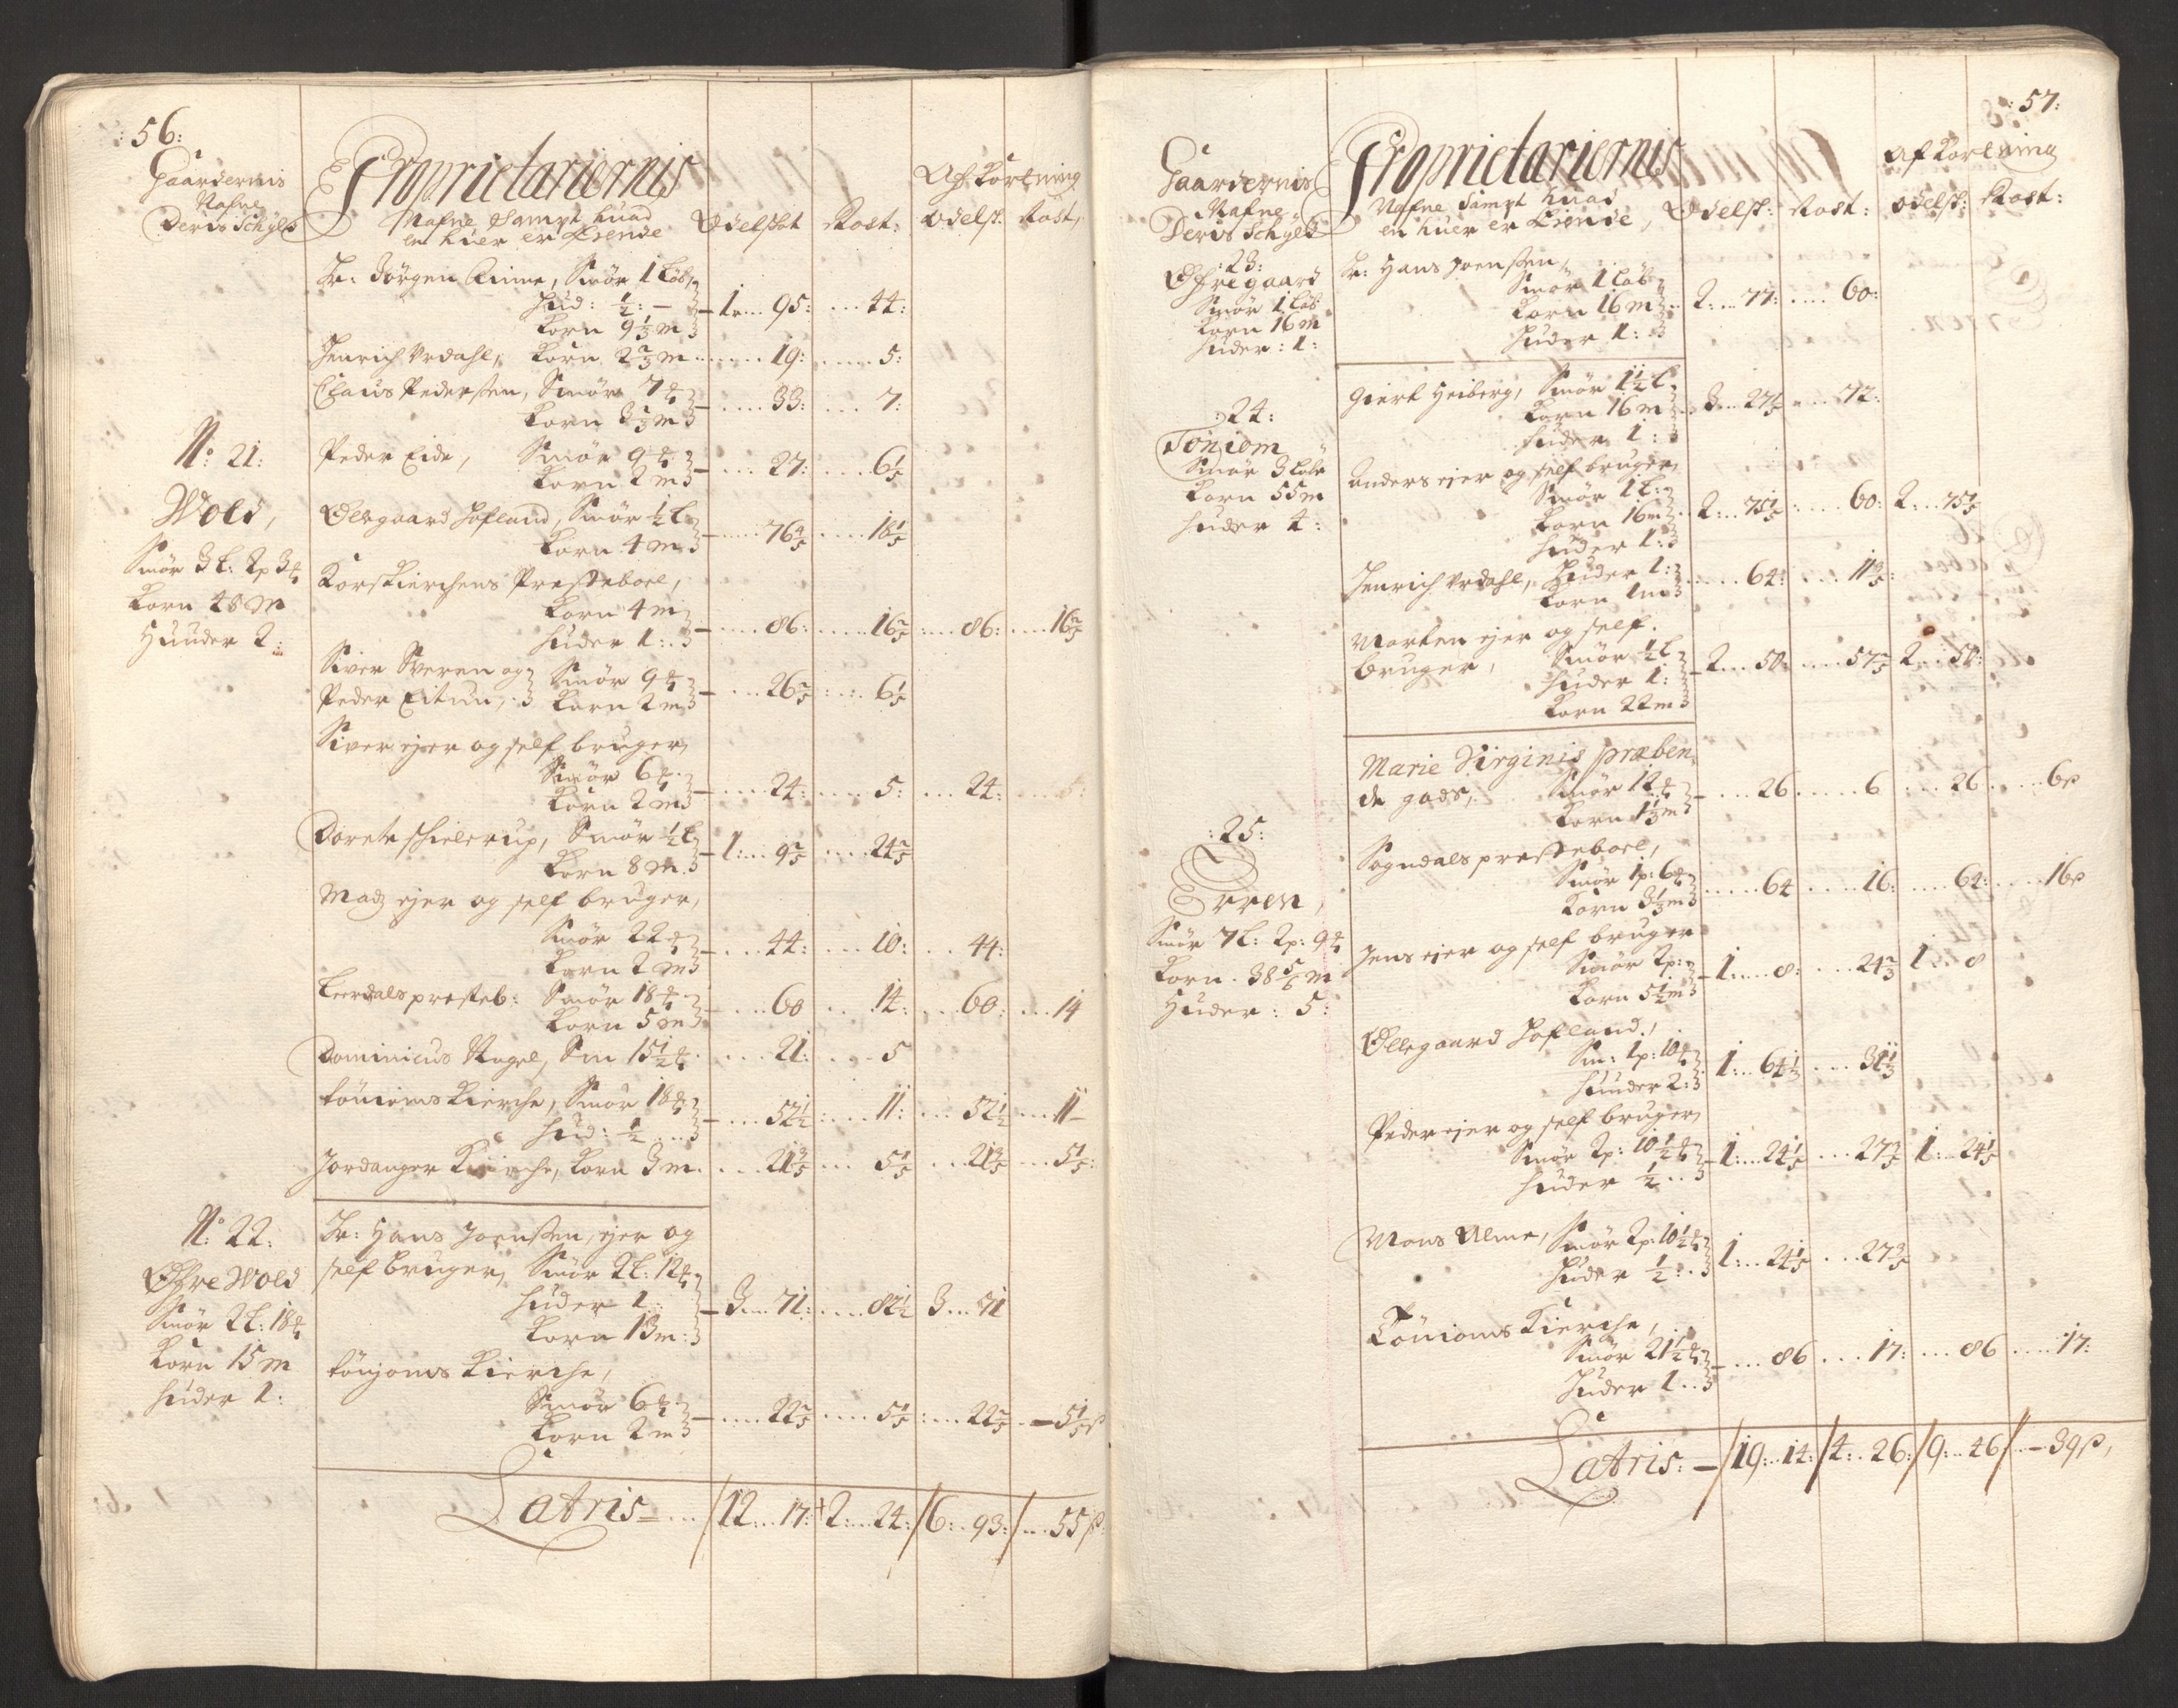 :56:
Gaardernis
Nafne
Deris Schyld
Proprietariernis
Nafne sampt huad
en huer er Eiende
Odelskat
Rost:
Af Kortning
odelsk:
Rost,
Hr: Jörgen Rinne, Smör 1 Löb
Hud: ½: –
Korn 9⅓ m
1 .... 95: ... 44:
Henrich Urdahl, Korn 2⅔ m ...... 19: ..... 5:
Claus Pedersen, Smör 7
Korn 3⅓ m
.... 33: ... 7:
N: 21:
Wold,
Smör 3 L: 2p 3
Korn 48 m
Huuder 2:
Peder Eide, Smör 9
Korn 2 m
.... 27: .... 6⅕
Øllegaard Hofland, Smör ½ L
Korn 4 m
..... 76⅘ .... 18⅕
Korskierchens Presteboel,
Korn 4 m
Huder 1:
.... 86: ..... 16⅖ .... 86: .... 16⅖
Siver Sveren og Smör 9
Peder Eitun, Korn 2 m
.... 26⅖ .... 6⅕
Siver ejer og self bruger,
Smör 6
Korn 2 m
.... 24: .... 5: .... 24: .... 5:
Dorete Schielerup, Smör ½ L
Korn 8 m
1: ... 9⅖ .... 24⅖
Mads ejer og self bruger,
Smör 22
Korn 2 m
.... 44: ... 10: ... 44:
Leerdals presteb: Smör 18
Korn 5 m
.... 60 .. 14: ... 60: ... 14
Dominicus Nagel, Sm 15½ .... 21: ... 5
Tönioms Kierche, Smör 18
Hud: ½ ...
.... 52½ .... 11: ... 52½ ... 11 –
Jordanger Kierche, Korn 3 m. ... 21⅗ ... 5⅕ ... 21⅗ ... 5⅕:
N: 22:
Øfre Wold
Smör 2 L: 18
Korn 15 m
Huder 1:
Hr: Hans Joensen, ejer og
self bruger, Smör 2 L: 12
Huder 1
Korn 13 m:
3 ... 71: .... 82½ 3 ... 71
Tönjoms Kierche,
Smör 6
Korn 2 m
.... 22⅖ .... 5⅕ .... 22⅖ – 5⅕ ß
Latris – .... 12: .. 17: 2: ... 24: 6: . 93: .... 55 ß
:57:
Gaardernis
Nafne
Deris Schyld
Proprietariernis
Nafne sampt huad
en huer er Eiende,
Odelsk:
Rost:
Af Kortning
odelsk:
Rost:
:23:
Øfregaard
Smör 1 Löb
Korn 16 m
Huder: 1:
Hr: Hans Joensen,
Smör 1 Löb
Korn 16 m
Huder 1:
2: ... 77: .... 60:
:24:
Töniom
Smör 3 Löbe
Korn 55 m
Huder 4:
Giert Heiberg, Smör 1½ L
Korn 16 m
Huder 1:
3 ... 27⅕ .... 72:
Anders ejer og self bruger,
Smör 1 L:
Korn 16 m
Huder 1:
2: ... 75⅕ .... 60: 2 ... 75⅕
Henrich Urdahl, Huder 1:
Korn 1 m
..... 64: .... 11⅗:
Morten ejer og self
bruger, Smör ½ L
Huder 1:
Korn 22 m
2 ... 50: .... 57⅖ 2 ... 50:
:25:
Erren,
Smör 7 L: 2p: 9
Korn 38⅚ m
Huder: 5:
Marie Virginis præben
de gods, Smör 12
Korn 1⅓ m
.... 26 ..... 6 ... 26 .... 6 ß
Sogndals presteboel,
Smör 1p: 6
Korn 3⅓ m
..... 64 .... 16: .... 64: .... 16 ß
Jens ejer og self bruger
Smör 2p:
Korn 5½ m
1: ... 8: ... 24⅔ 1 .. 8
Øllegaard Hofland,
Sm: 1p: 10
Huuder 2:
1: ... 64⅓ .... 31⅓
Peder ejer og self bruger,
Smör 2p: 10½
Huder ½ ..
1: ... 24⅕ ... 27⅗ 1: .. 24⅕
Mons Alme, Smör 2p: 10½
Huder ½ ..
1: ... 24⅕ ... 27⅗
Tönioms Kierche,
Smör 21½
Huder 1 ..
.... 86 ... 17: ... 86 .... 17:
Latris: – 19: . 14: 4: . 26: 9: .. 46 . – 39 ß,